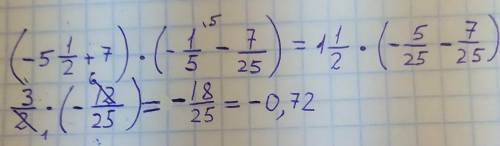 (-5 1/2 + 7) · (-1/5 ⁵ - 7/25) = 1 1/2 · (-5/25 - 7/25)
3/2 1 · (-12 6/25) = -18/25 = -0,72